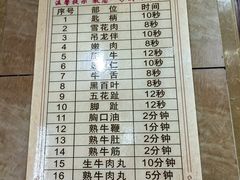 温馨提示
序号 部位 时间
1 匙柄 10秒
2 雪花肉 8秒
3 吊龙伴 10秒
4 嫩肉 8秒
5 12秒
6 仁 10秒
7 牛舌 12秒
8 黑百叶 8秒
9 五花趾 12秒
10 脚趾 12秒
11 胸口油 2分钟
12 熟牛鞭 1分钟
13 熟牛肚 2分钟
14 熟牛筋 2分钟
15 生牛肉丸 10分钟
16 熟牛肉丸 5分钟